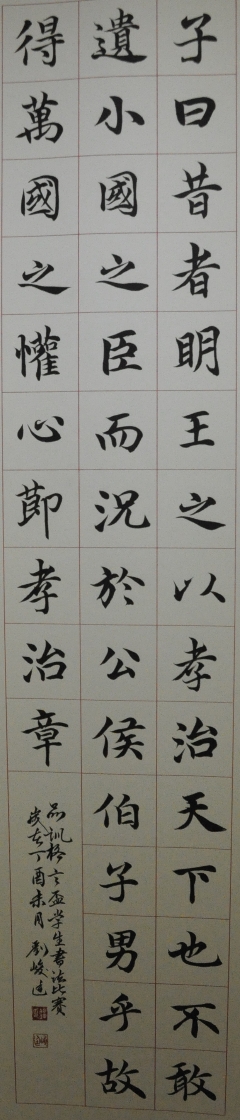 子曰昔者明王之以孝治天下也不敢
遺小國之臣而況於公侯伯子男乎故
得萬國之懽心節孝治章
品訓格言盃學生書法比賽
歲在丁酉未月劉峻廷